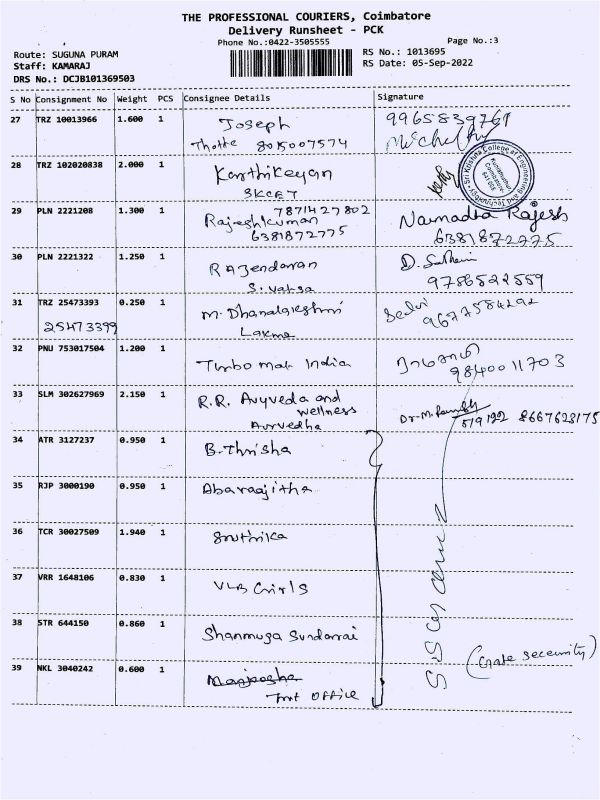 THE PROFESSIONAL COURIERS, Coimbatore
Delivery Runsheet - PCK
Phone No.:0422-3505555
Page No.:3
Route: SUGUNA PURAM
Staff: KAMARAJ
DRS No.: DCJB101369503
RS No.: 1013695
RS Date: 05-Sep-2022
S No Consignment No Weight PCS Consignee Details Signature
27 TRZ 10013966 1.600 1 Joseph 9965839761
Thotte 8015007574
28 TRZ 102020838 2.000 1 Karthikeyan
SKCET
Sri Krishna College of Engineering and Technology
Kuniamuthur, Coimbatore 641 008
29 PLN 2221208 1.300 1 7871427802
Rajeshkumar Narmadha Rajesh
6381872775 6381872775
30 PLN 2221322 1.250 1 Rajendaran
S. Vatsa 9786522559
31 TRZ 25473393 0.250 1 M. Dhanalakshmi Selvi
25473399 Lakme 9677584292
32 PNU 753017504 1.200 1 Turbo mat India
9840011703
33 SLM 302627969 2.150 1 R.R. Auyveda and
wellness
Aurvedha
5/9/22 8667623175
34 ATR 3127237 0.950 1 B. Thrisha
35 RJP 3000190 0.950 1 Abaraajitha
36 TCR 30027509 1.940 1 Sruthika
37 VRR 1648106 0.830 1 VLB Girls
38 STR 644150 0.860 1 Shanmuga Sundarrai
(Gate security)
39 NKL 3040242 0.600 1
OFFice